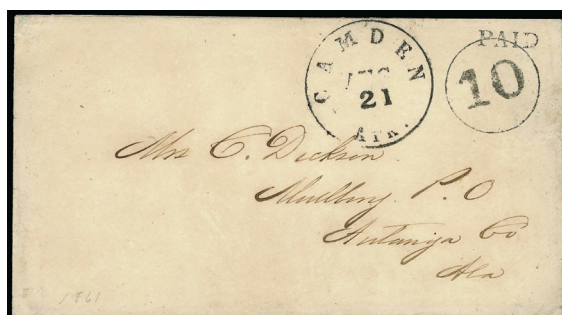 CAMDEN
AUG
21
ARK.
PAID
10
Mrs C. Dickson
Mulberry P.O
Autauga Co
Ala
1861